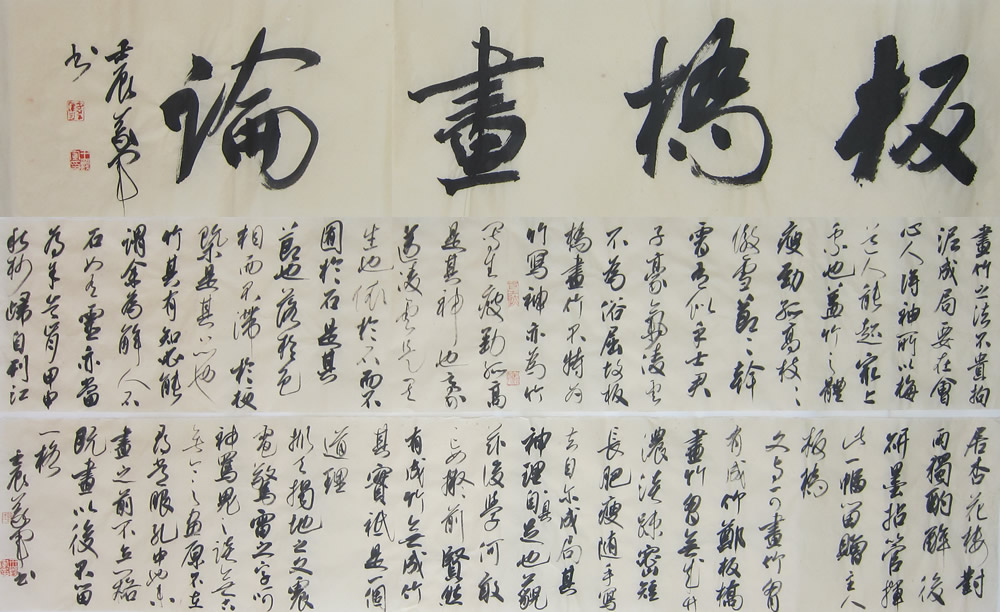 板橋畫論
壬辰義軍
书
畫竹之法不貴拘
泥成局要在會
心人得神所以梅
道人能超最上
乘也蓋竹之體
瘦勁孤高枝枝
傲雪節節幹
霄有似乎士君
子豪氣凌雲
不為俗屈故板
橋畫竹不特為
竹寫神亦為竹
寫生瘦勁孤高
是其神也豪
邁凌雲是其
生也依於石而不
囿於石是其
節也落於色
相而不滯於梗
概是其品也
竹其有知必能
謂余為解人
石如有靈亦當
為余首肯甲申
秋杪歸自邗江
居杏花樓對
雨獨酌醉後
研墨拈管揮
此一幅留贈主人
板橋
文與可畫竹胸
有成竹鄭板橋
畫竹胸無成竹
濃淡疎密短
長肥瘦隨手寫
去自尔成局其
神理自具足也藐
茲後學何敢
妄擬前賢然
有成竹無成竹
其實祗是一個
道理
掀天揭地之文震
電驚雷之字呵
神罵鬼之談無古
無今之畫原不在
尋常眼孔中也未
畫之前不立一格
既畫以後不留
一格
壬辰義軍书